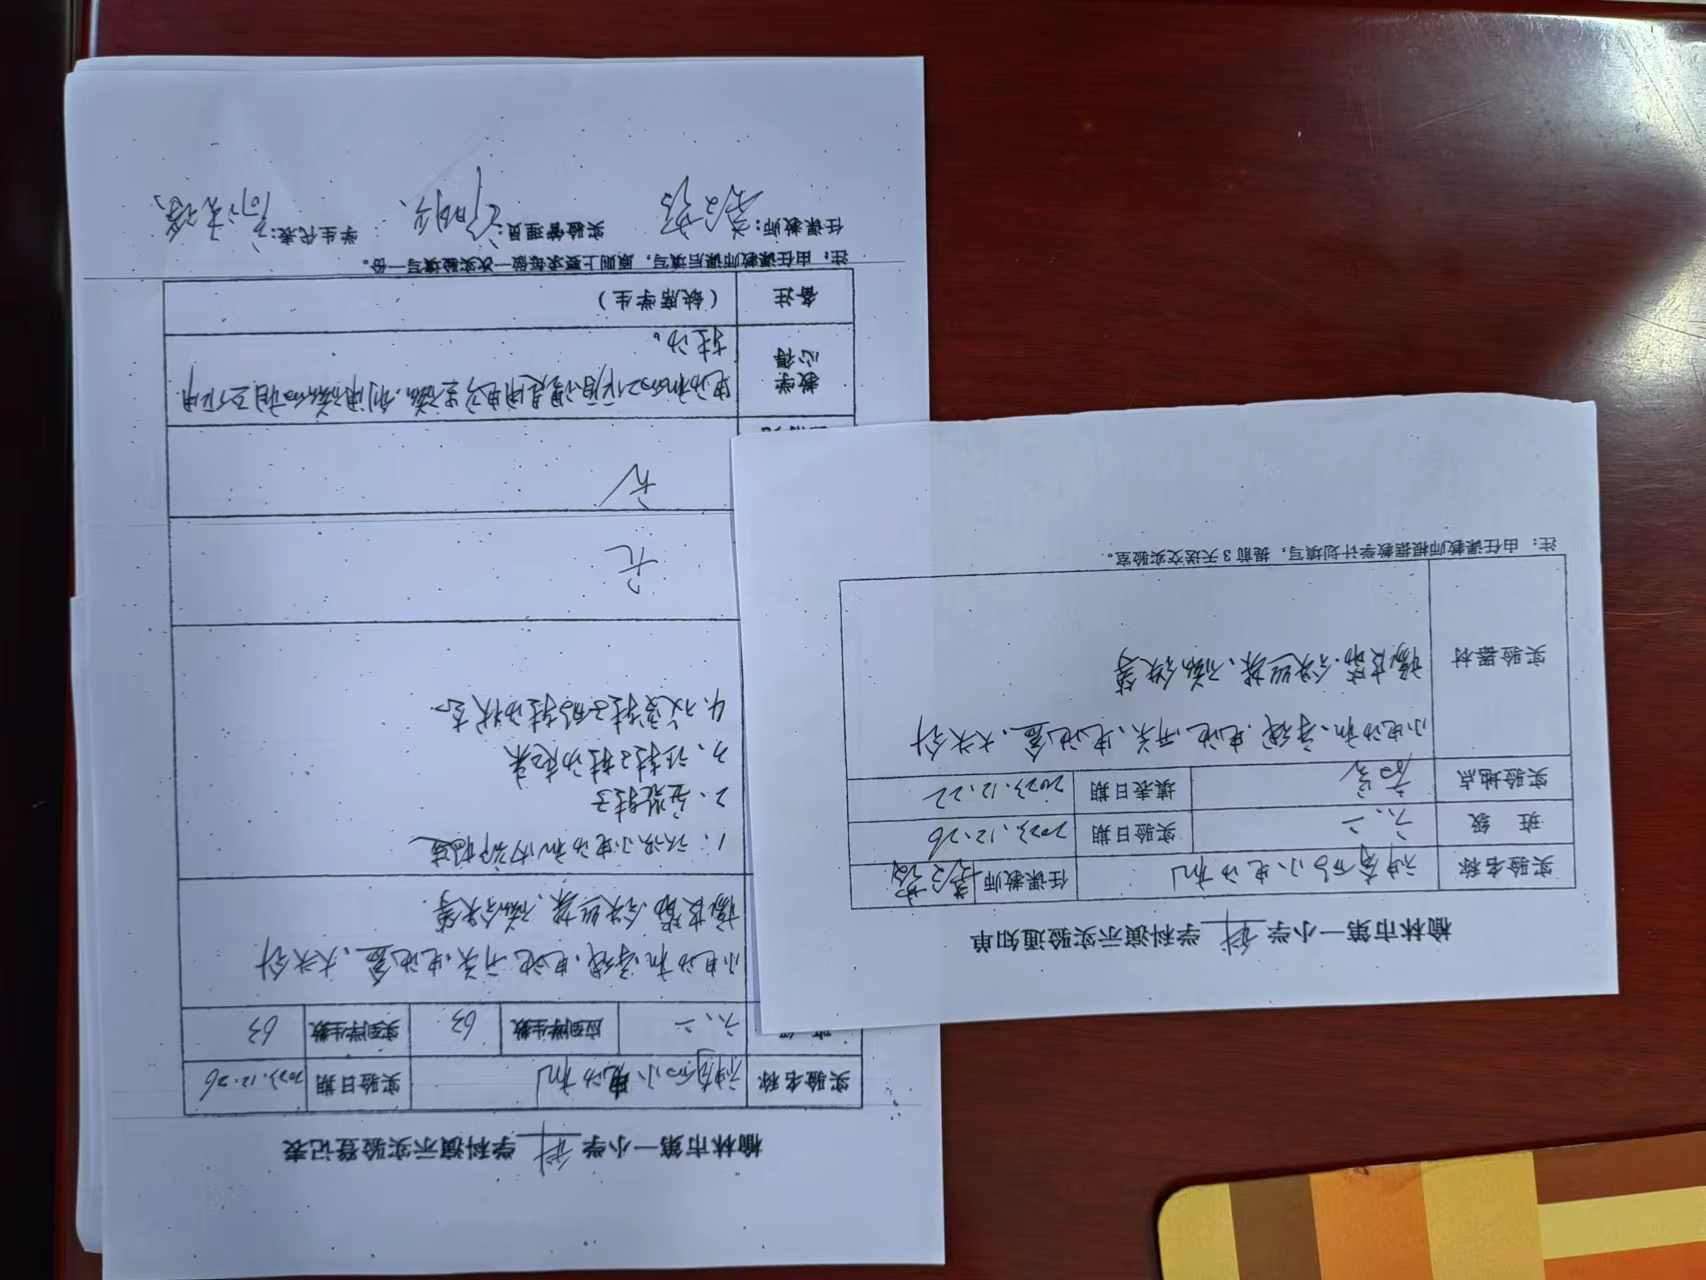 榆林市第一小学 科 学科演示实验登记表
实验名称 神奇的小电动机 实验日期 2023.12.26
六、二 应到学生数 63 实到学生数 63
小电动机、导线、电池、开关、电池盒、大头针
橡皮筋、铁丝架、磁铁等
1、认识小电动机内部构造
2、安装转子
3、让转子转动起来
4、改变转子的转动状态。
无
无
教学心得 电动机的工作原理是用电产生磁,利用磁的相互作用
转动。
备注 (缺席学生)
注:由任课教师课后填写,原则上要求每做一次实验填写一份。
任课教师: 实验管理员: 学生代表:
榆林市第一小学 科 学科演示实验通知单
实验名称 神奇的小电动机 任课教师
班 级 六、二 实验日期 2023.12.26
实验地点 填表日期 2023.12.22
实验器材 小电动机、导线、电池、开关、电池盒、大头针
橡皮筋、铁丝架、磁铁等
注:由任课教师根据教学计划填写,提前3天送交实验室。